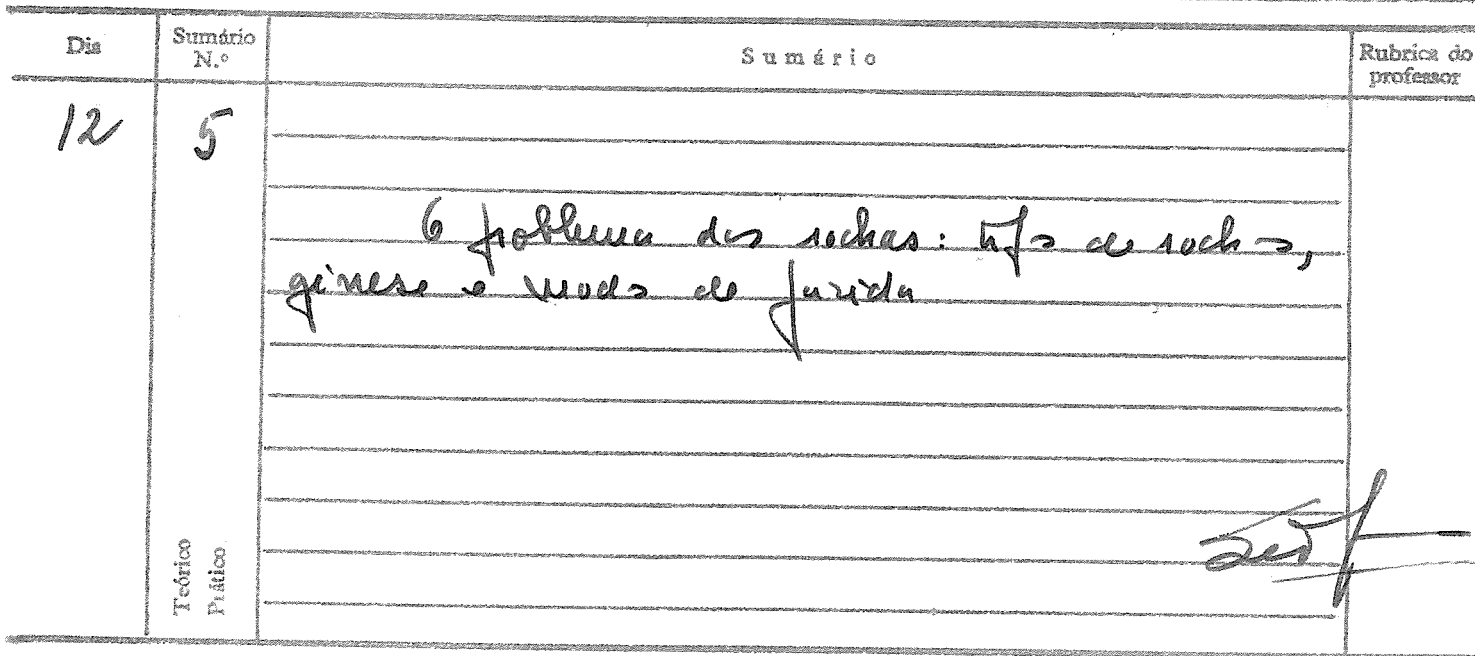 Dia
Sumário N.º
Sumário
Rubrica do professor
12
5
O problema das rochas: tipos de rochas,
génese e modo de jazida
Teórico
Prático